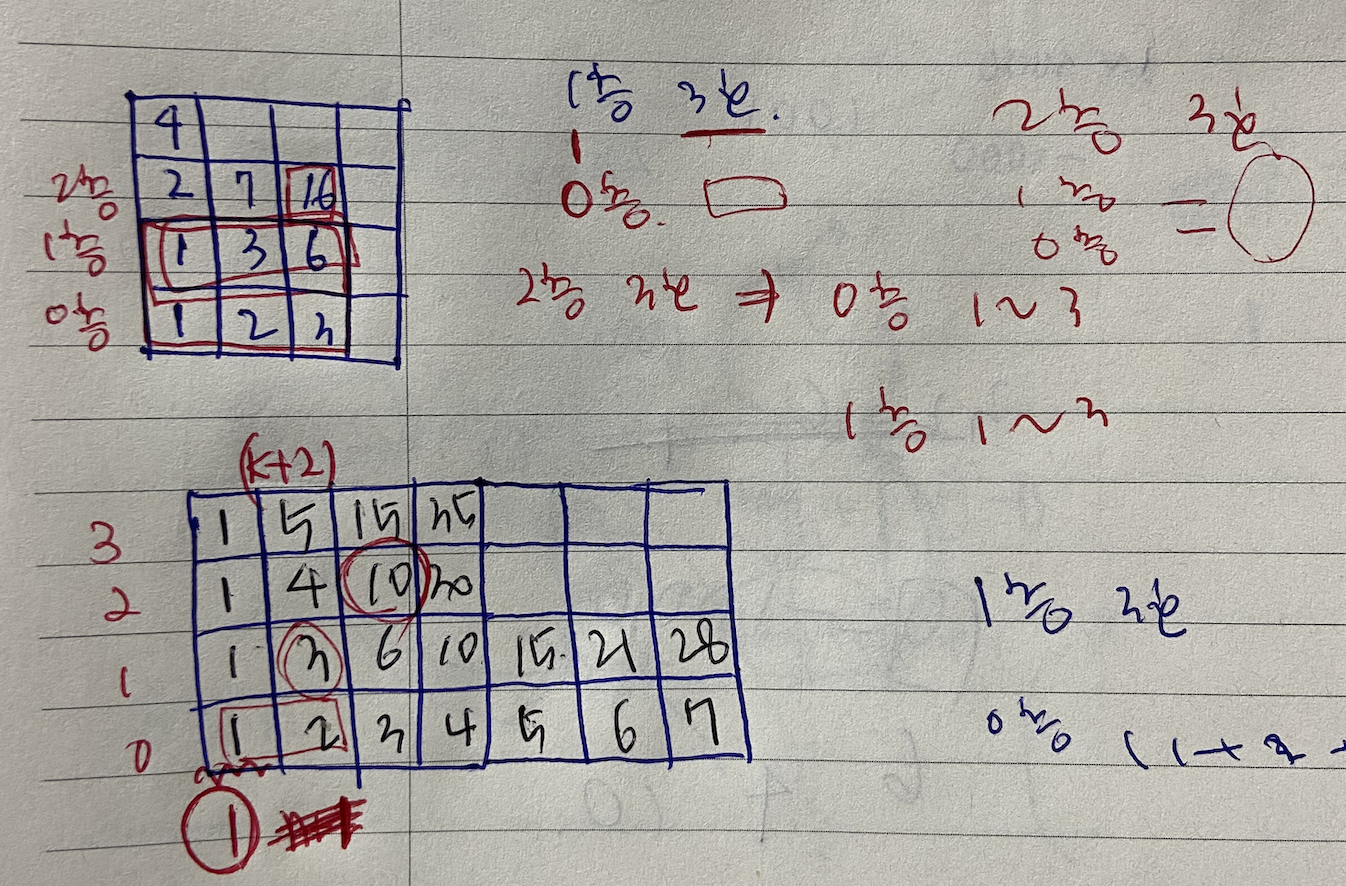 4
2층 2 7 16
1층 1 3 6
0층 1 2 3
1층 3호.
0층.
2층 3호 ⇐ 0층 1~3
1층 1~3
2층 3호
1층 =
0층
(k+2)
3 1 5 15 35
2 1 4 10 20
1 1 3 6 10 15 21 28
0 1 2 3 4 5 6 7
1
1층 3호
0층